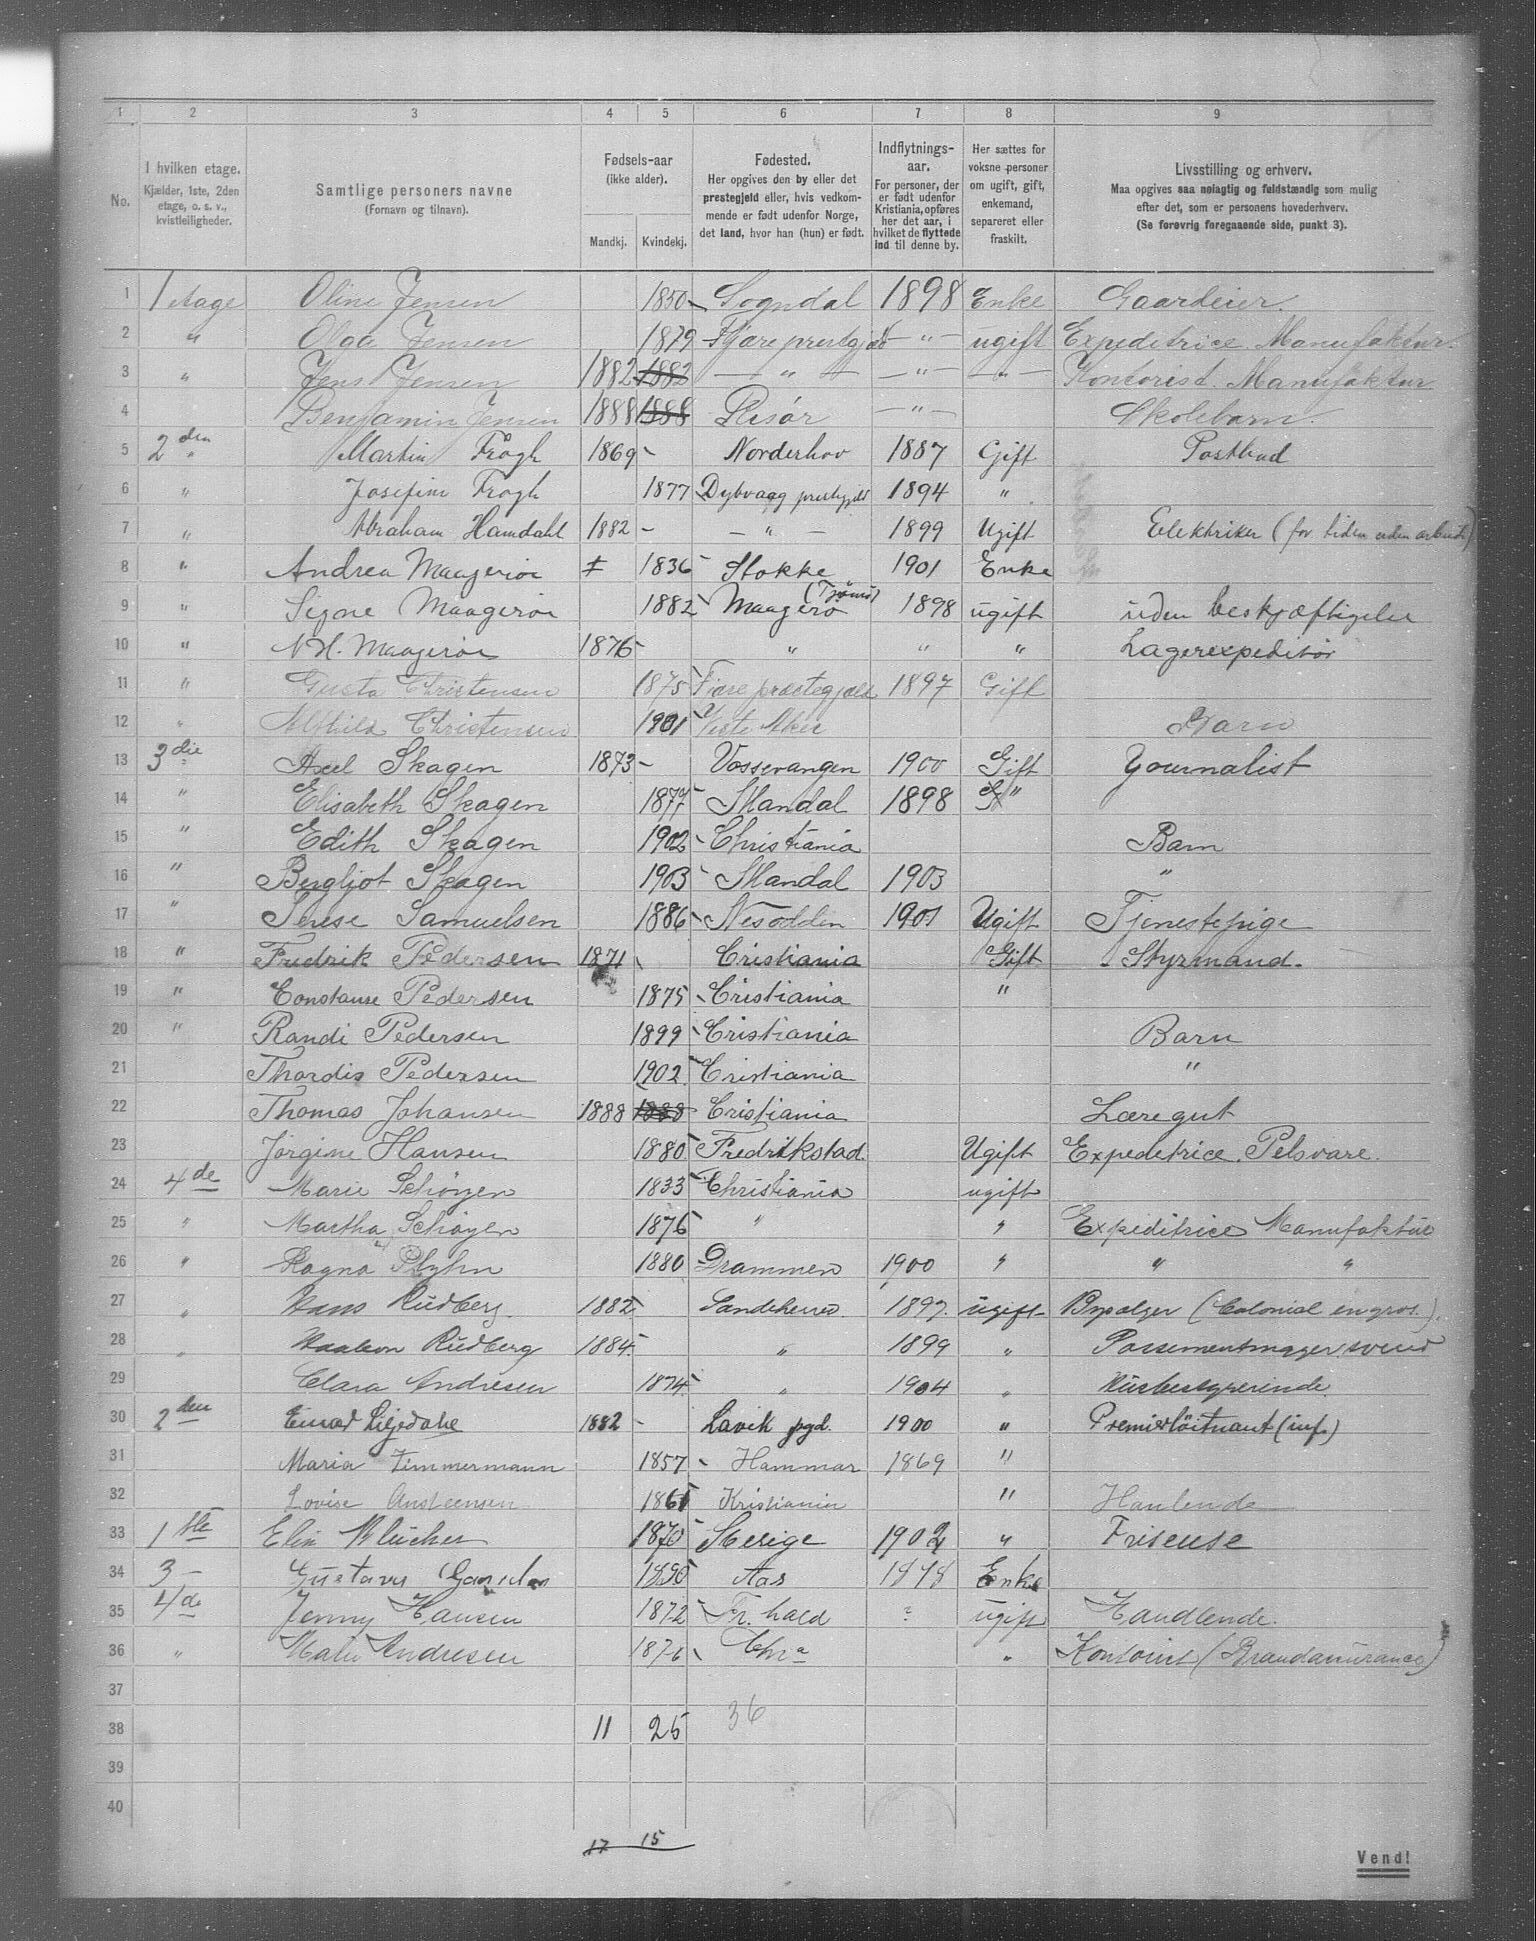 1 2 3 4 5 6 7 8 9
No.
I hvilken etage.
Kjælder, 1ste, 2den
etage, o. s. v.,
kvistleiligheder.
Samtlige personers navne
(Fornavn og tilnavn).
Fødsels-aar
(ikke alder).
Mandkj. Kvindekj.
Fødested.
Her opgives den by eller det
prestegjeld eller, hvis vedkom-
mende er født udenfor Norge,
det land, hvor han (hun) er født.
Indflytnings-
aar.
For personer, der
er født udenfor
Kristiania, opføres
her det aar, i
hvilket de flyttede
ind til denne by.
Her sættes for
voksne personer
om ugift, gift,
enkemand,
separeret eller
fraskilt.
Livsstilling og erhverv.
Maa opgives saa nøiagtig og fuldstændig som mulig
efter det, som er personens hovederhverv.
(Se forøvrig foregaaende side, punkt 3).
1 1 etage Oline Jensen 1850 Sogndal 1898 Enke Gaardeier.
2 " Olga Jensen 1879 Fjære prestgjæld — " — ugift Expeditrice. Manufaktur.
3 " Jens Jensen 1882 1882 — " — — " — — " — Kontorist. Manufaktur
4 Benjamin Jensen 1888 1888 Risør — " — Skolebarn.
5 2 den " Martin Frøgh 1869 - Norderhov 1887 Gift Postbud
6 " Josefine Frøgh 1877 Dybvaag prestgjeld 1894 "
7 " Abraham Hamdahl 1882 - — " — 1899 Ugift Elektriker (for tiden uden arbeide)
8 " Andrea Maagerøe 1836 Stokke 1901 Enke
9 " Signe Maagerøe 1882 Maagerø (Tjømø) 1898 ugift uden beskjæftigelse
10 " N H. Maagerøe 1876 - " " " Lagerexpeditør
11 " Gusta Christensen 1875 Fjære præstegjæld 1897 Gift
12 " Alfhild Christensen 1901 Vestre Aker Barn
13 3 die Axel Skagen 1873 - Vossevangen 1900 Gift Journalist
14 " Elisabeth Skagen 1877 Mandal 1898 "
15 " Edith Skagen 1902 Christiania Barn
16 " Bergljot Skagen 1903 Mandal 1903 "
17 " Terese Samuelsen 1886 Nesodden 1901 Ugift Tjenestepige
18 " Fredrik Pedersen 1871 Cristiania Gift Styrmand.
19 " Constanse Pedersen 1875 Cristiania "
20 " Randi Pedersen 1899 Cristiania Barn
21 Thordis Pedersen 1902 Cristiania "
22 Thomas Johansen 1888 1888 Cristiania Læregut
23 Jørgine Hansen 1880 Fredrikstad. Ugift Expeditrice. Pelsvare.
24 4 de Marie Schøyen 1833 Christiania ugift
25 " Martha Schøyen 1876 " " Expeditrice Manufaktur
26 " Ragna 1880 Drammen 1900 " " "
27 " Hans Rudberg. 1882 Sandeherred. 1897. ugift (Colonial engros.).
28 " Haakon Rudberg 1884 - " 1899 " Possementmagersvend
29 Clara Andresen 1874 " 1904 " Husbestyrerinde
30 2 den Einar Liljedahl 1882 - Lavik pgd. 1900 " Premierløitnant (inf.)
31 Maria Timmermann 1857 Hammar 1869 "
32 Lovise 1861 Kristiania " Hanlende
33 1 ste Elin 1870 Sverige 1902 " Friseuse
34 3 - 1850 Aas 1878 Enke
35 4 de Jenny Hansen 1872 Fr. hald ? ugift Handlende.
36 " Andresen 1876 Chr a " Kontorist (Brandassurance)
37
38 11 25 36
39
40
17 15
Vend!